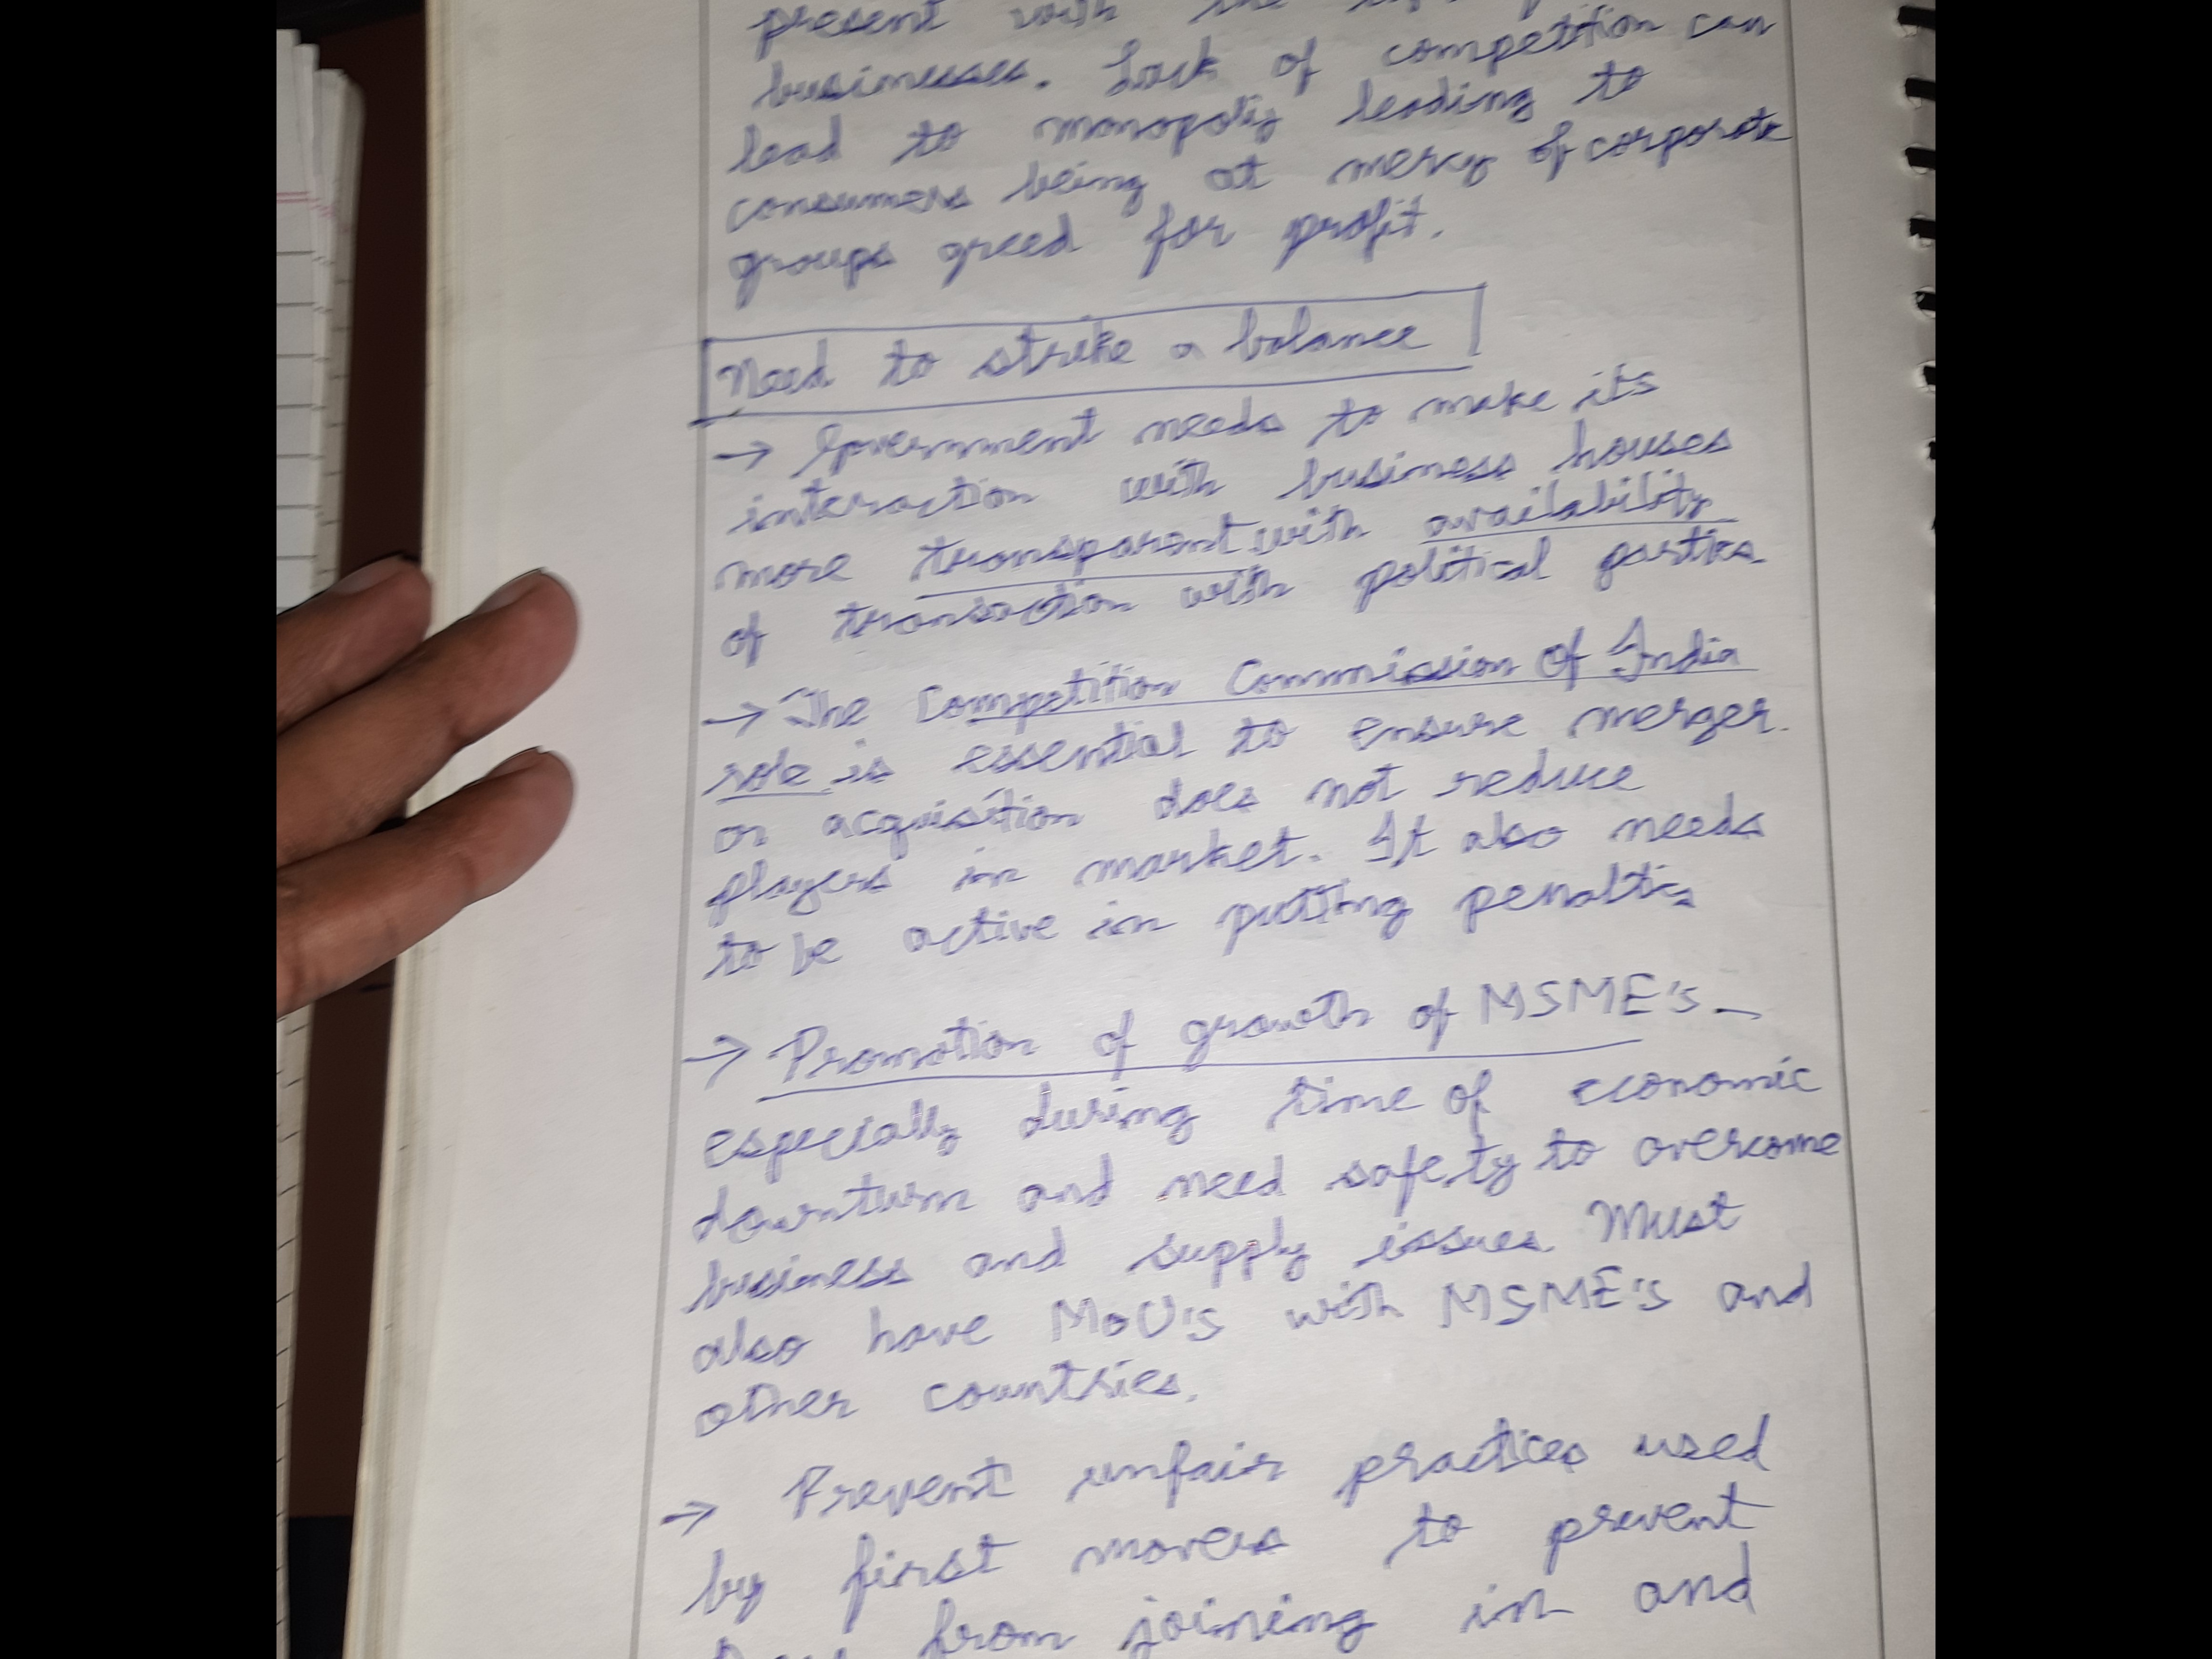 present with the
businesses. Lack of competition can
lead to monopoly leading to
consumers being at mercy of corporate
groups greed for profit.
Need to strike a balance
→ Government needs to make its
interaction with business houses
more transparent with availability
of transaction with political parties.
→ The Competition Commission Of India
role is essential to ensure merger
or acquisition does not reduce
players in market. It also needs
to be active in putting penalties
→ Promotion of growth of MSME's -
especially during time of economic
downturn and need safety to overcome
business and supply issues. Must
also have MoU's with MSME's and
other countries.
→ Prevent unfair practices used
by first movers to prevent
from joining in and